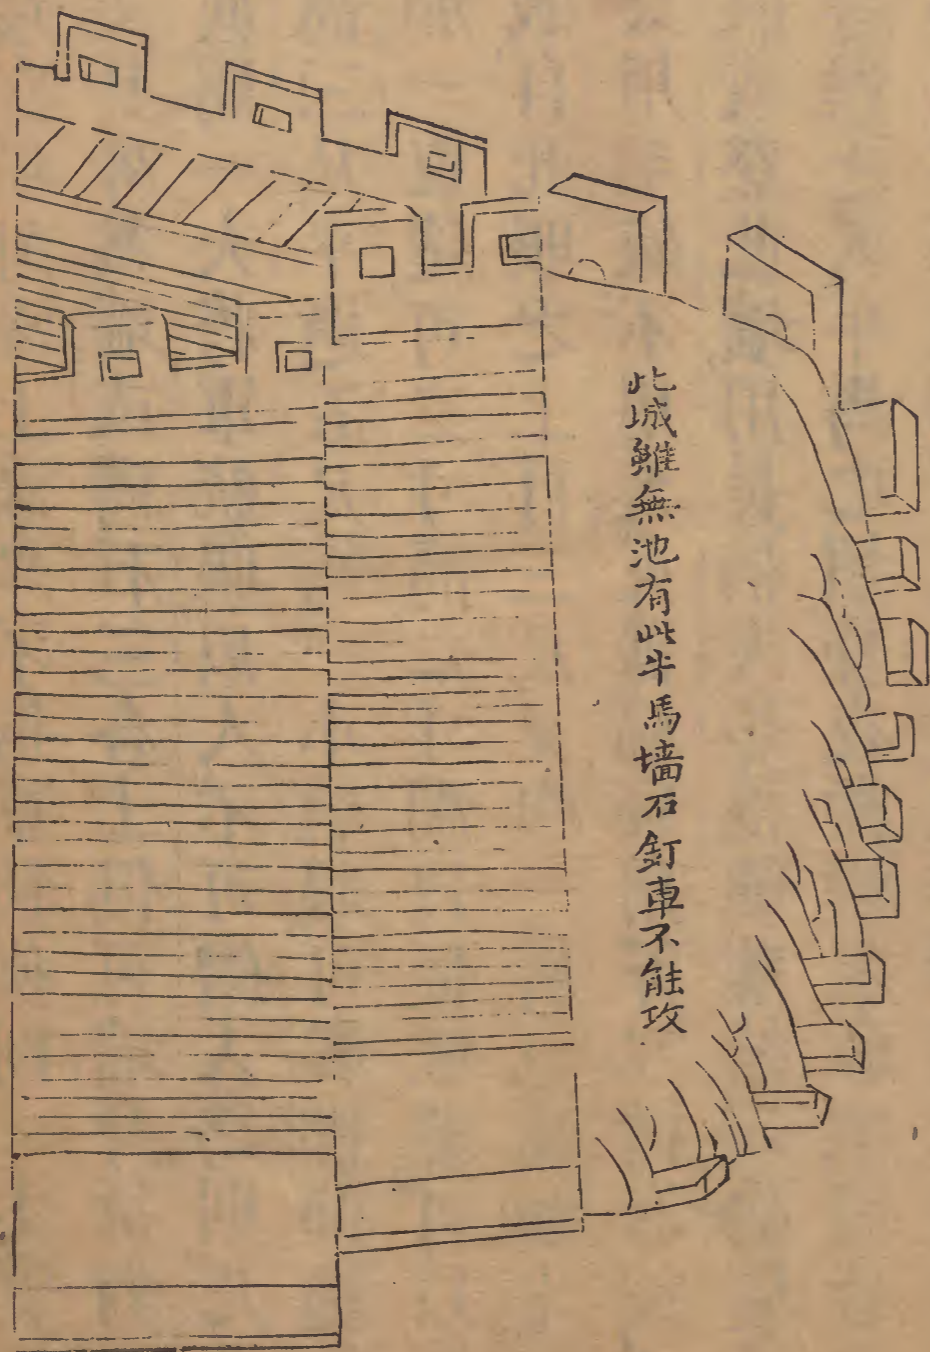 此城雖無池有此牛馬墻石釘車不能攻